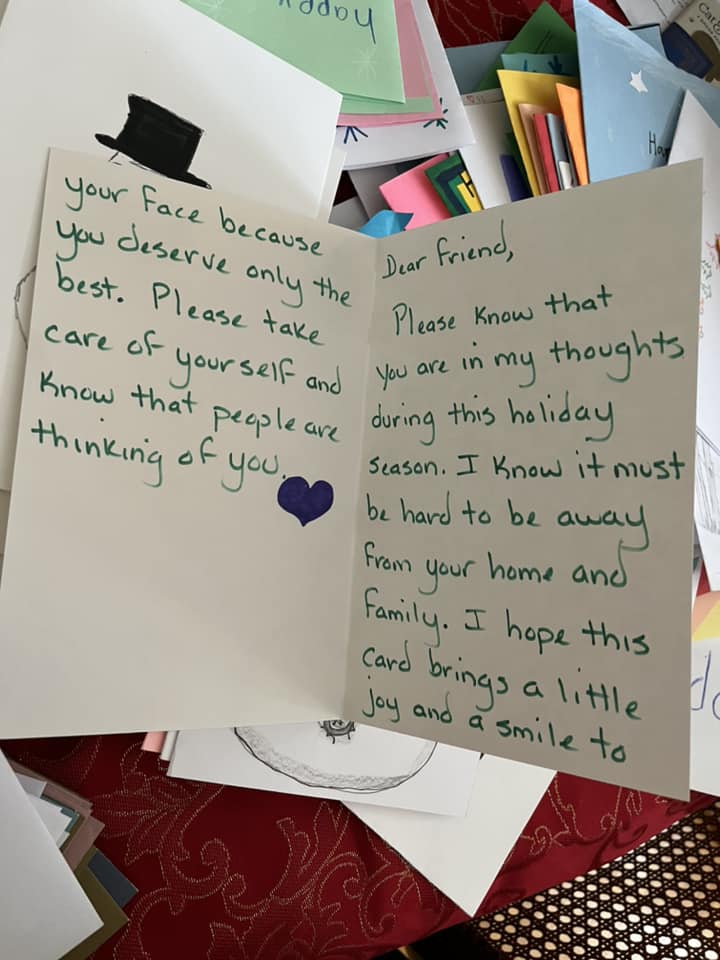 Happy
Dear friend,
Please know that
you are in my thoughts
during this holiday
season. I know it must
be hard to be away
from your home and
family. I hope this
card brings a little
joy and a smile to
your face because
you deserve only the
best. Please take
care of yourself and
know that people are
thinking of you.